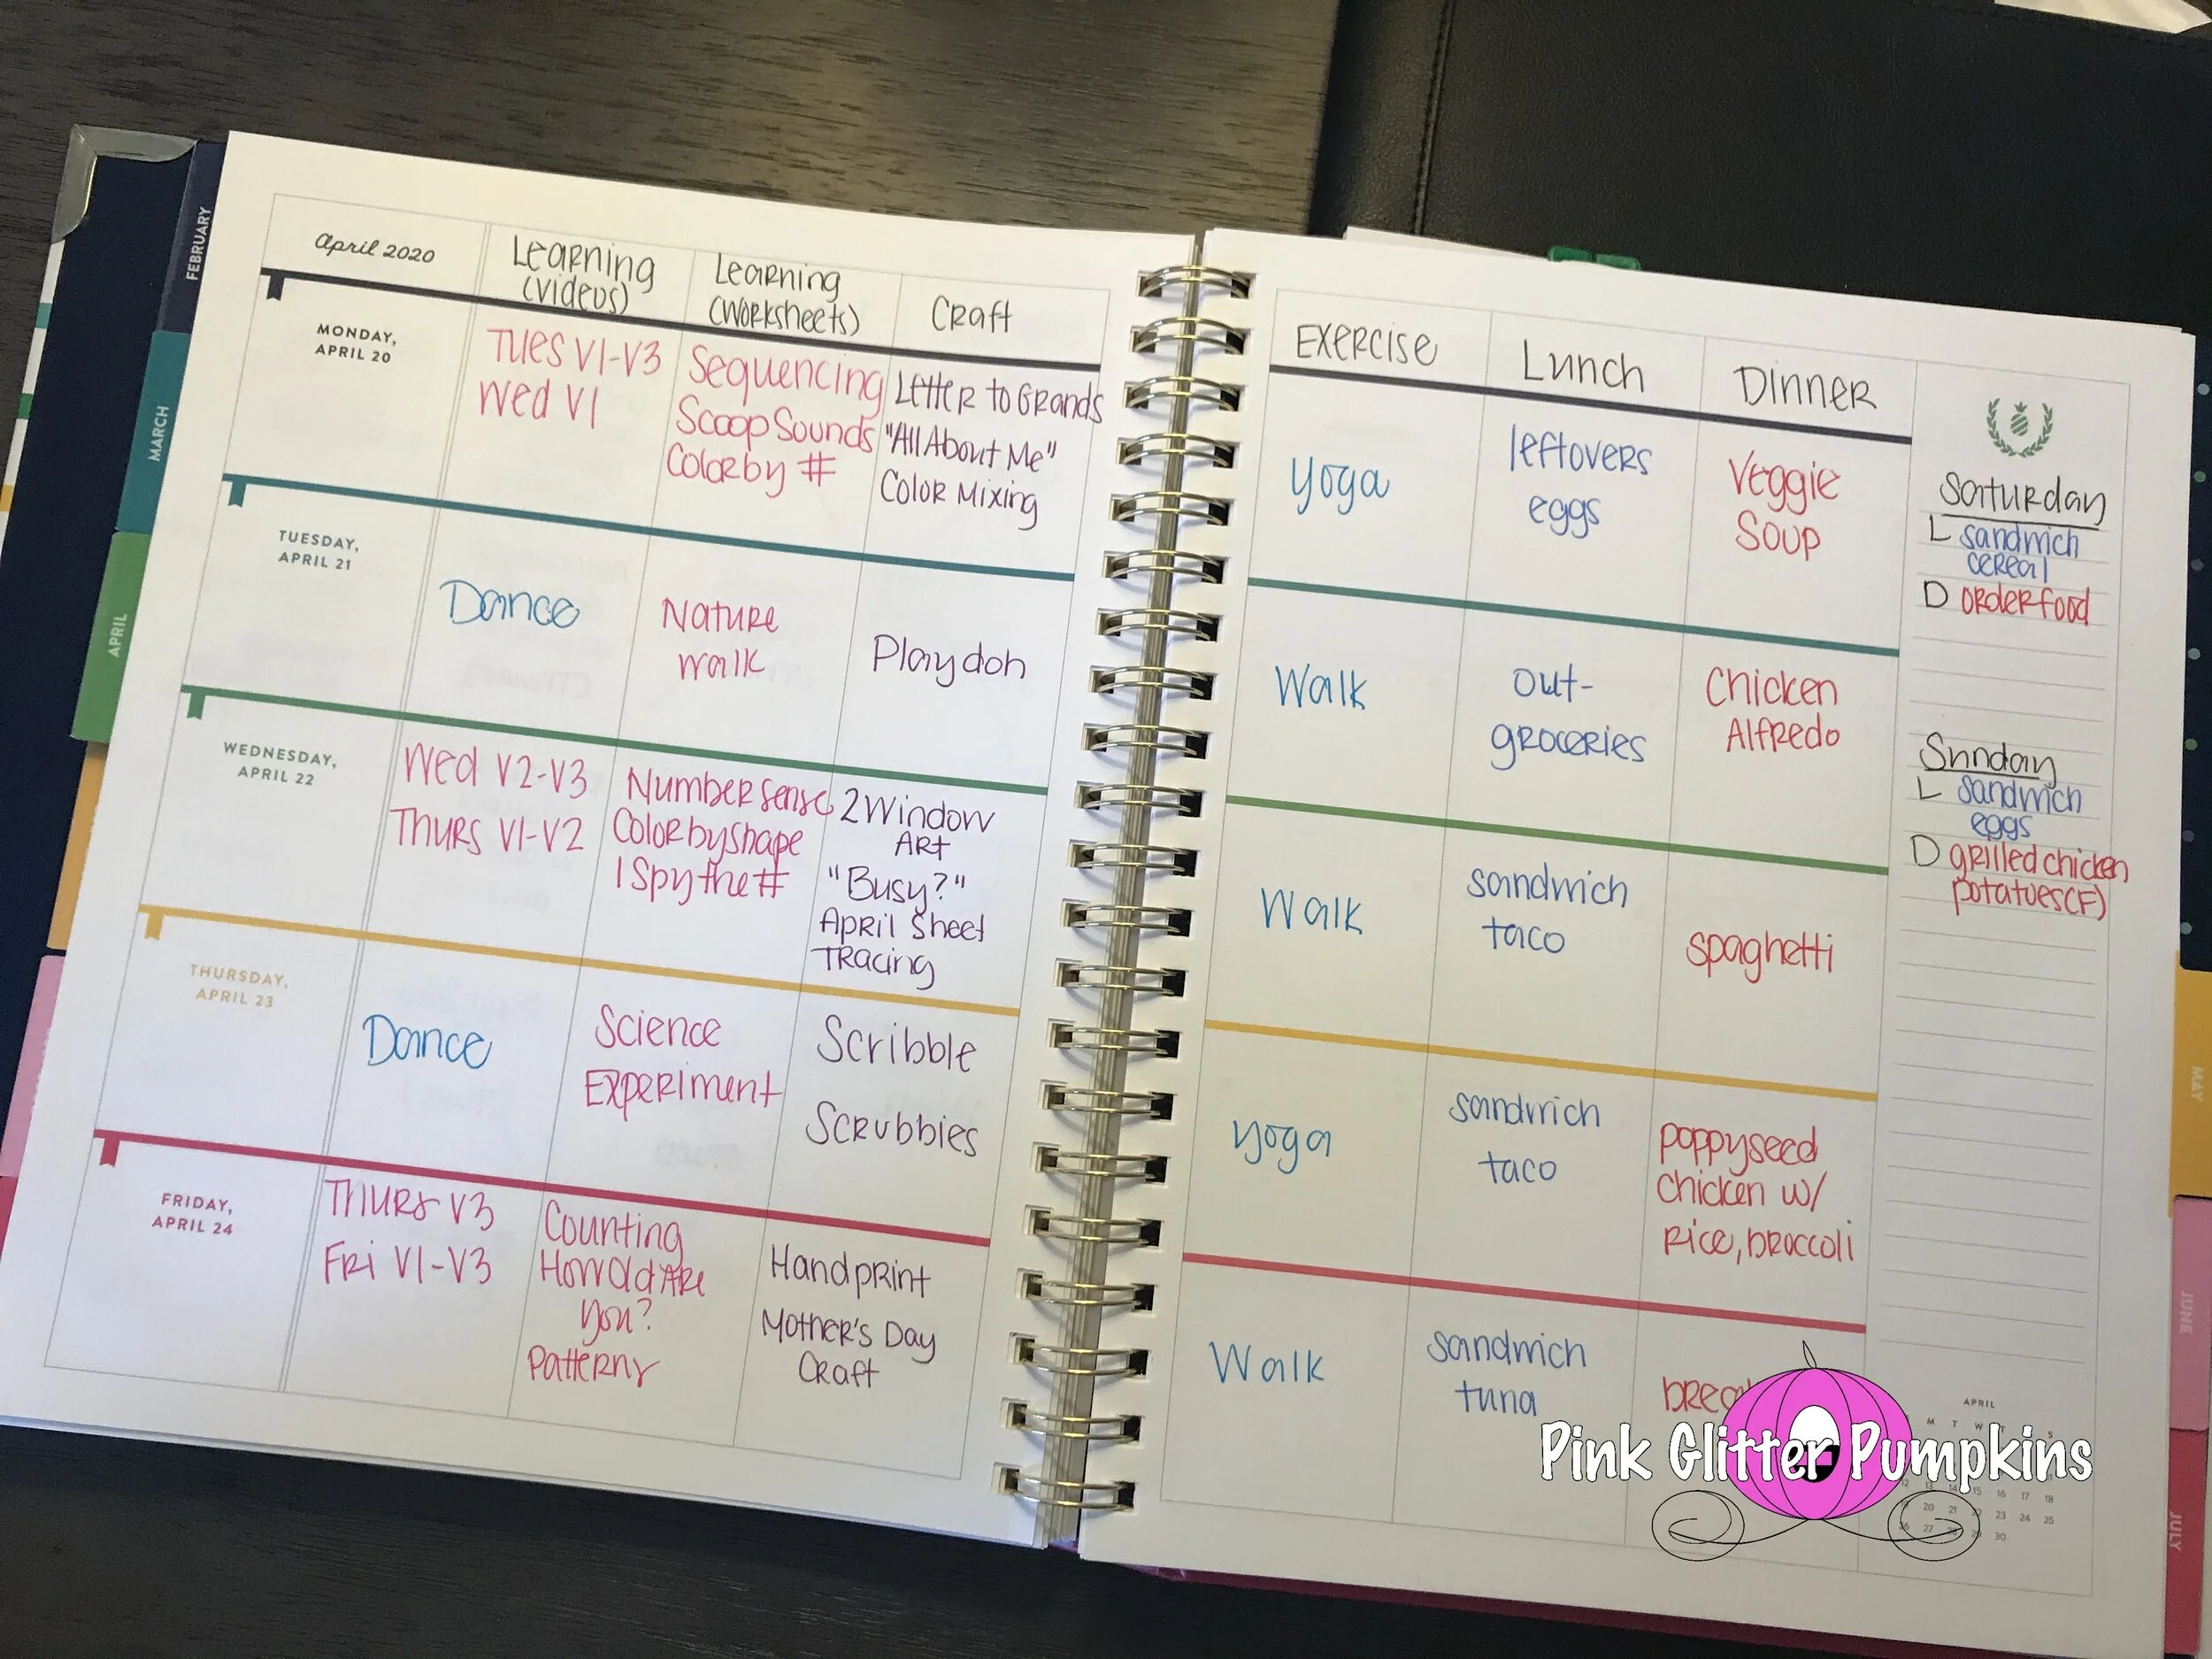 FEBRUARY
MARCH
APRIL
April 2020
Learning
(videos)
Learning
(worksheets)
Craft
MONDAY,
APRIL 20
Tues V1-V3
Wed V1
Sequencing
Scoop Sounds
Color by #
Letter to Grands
"All About Me"
Color Mixing
TUESDAY,
APRIL 21
Dance
Nature
walk
Playdoh
WEDNESDAY,
APRIL 22
Wed V2-V3
Thurs V1-V2
Number sense
Color by shape
I Spy the #
2 Window
Art
"Busy?"
April Sheet
Tracing
THURSDAY,
APRIL 23
Dance
Science
Experiment
Scribble
Scrubbies
FRIDAY,
APRIL 24
Thurs V3
Fri V1-V3
Counting
How Old Are
You?
Patterns
Handprint
Mother's Day
Craft
Exercise
Lunch
Dinner
Yoga
leftovers
eggs
Veggie
Soup
Walk
out-
groceries
Chicken
Alfredo
Walk
sandwich
taco
spaghetti
yoga
sandwich
taco
poppyseed
chicken w/
rice, broccoli
Walk
sandwich
tuna
Saturday
L sandwich
cereal
D order food
Sunday
L sandwich
eggs
D grilled chicken
potatoes (F)
APRIL
M T W S
12 13 14 15 16 17 18
20 21 22 23 24 25
26 27 28 29 30
Pink Glitter Pumpkins
MAY
JUNE
JULY